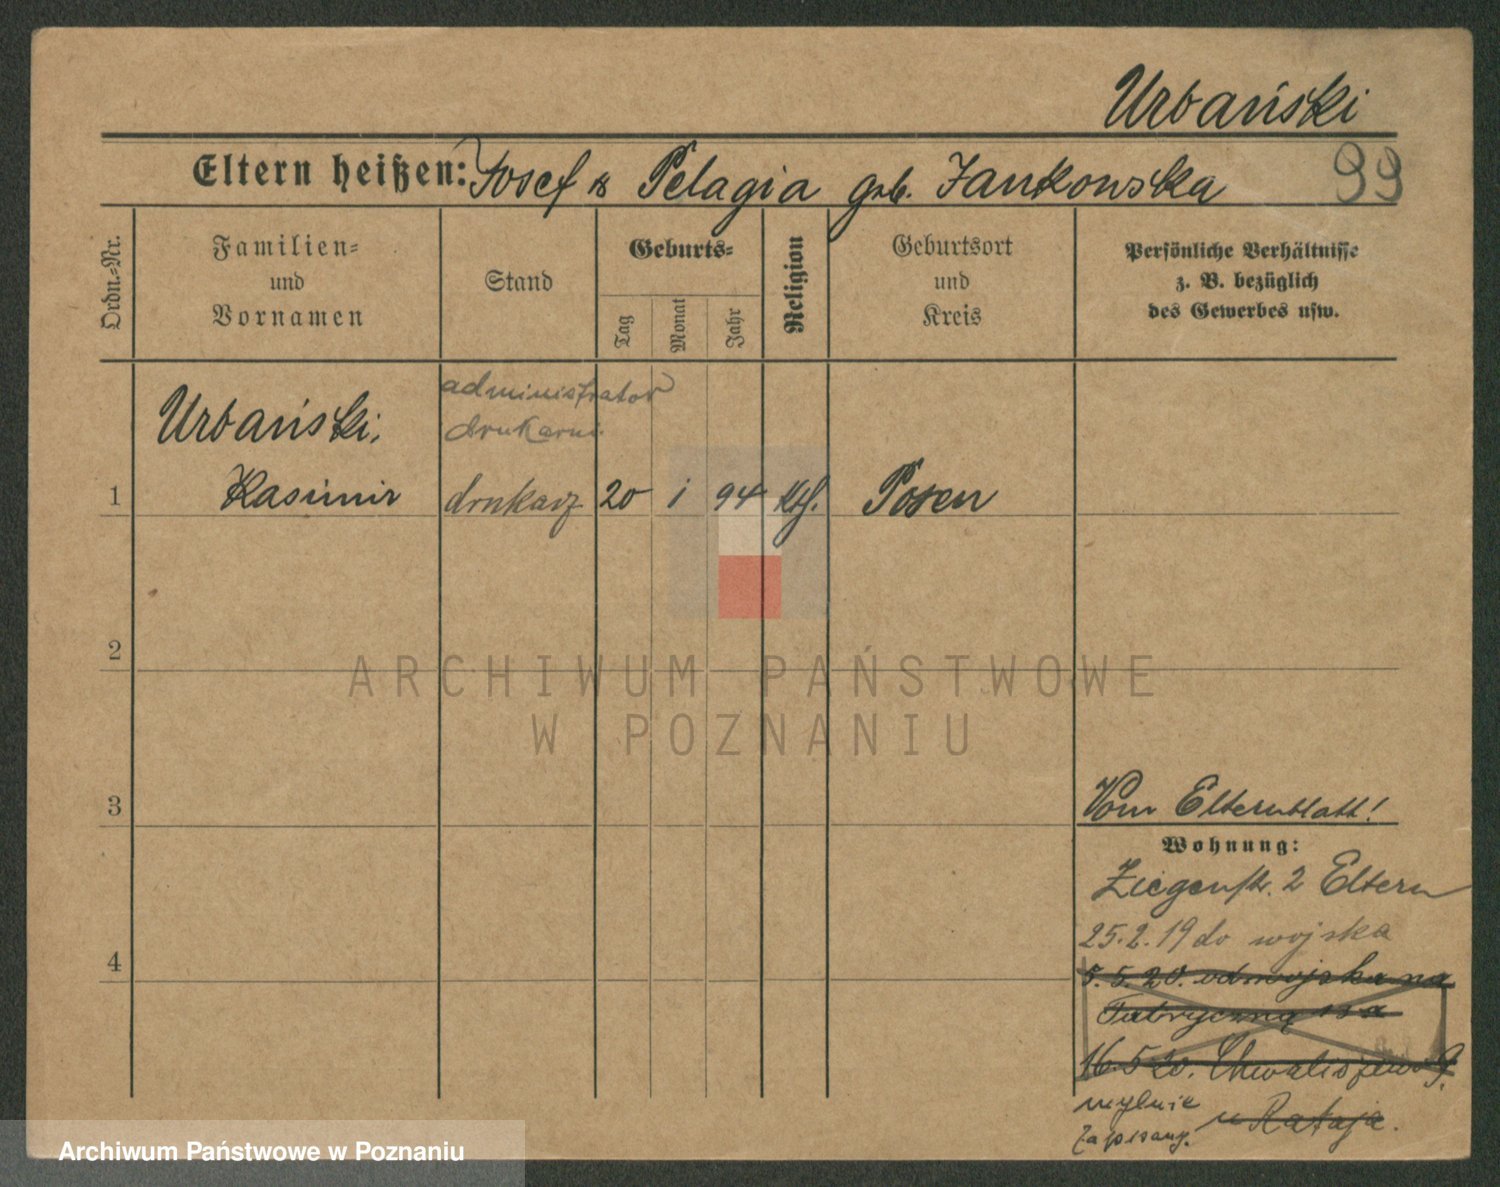 Urbański
Eltern heißen: Josef & Pelagia geb. Jankowska
99
Ordn.-Nr.
Familien-
und
Vornamen
Stand
Geburts-
Tag
Monat
Jahr
Religion
Geburtsort
und
Kreis
Persönliche Verhältnisse
z. B. bezüglich
des Gewerbes usw.
administrator
drukarni
Urbański,
1 Kasimir drukarz 20 1 94 Kth. Posen
2
ARCHIWUM PAŃSTWOWE
W POZNANIU
3
Vom Elternblatt!
Wohnung:
Ziegenstr. 2 Eltern
25.2.19 do wojska
4
5.5.20. od wojska na
Fabryczną 13a
16.5.20. Chwaliszewo 9.
u Rataja.
mylnie
zapisany.
Archiwum Państwowe w Poznaniu